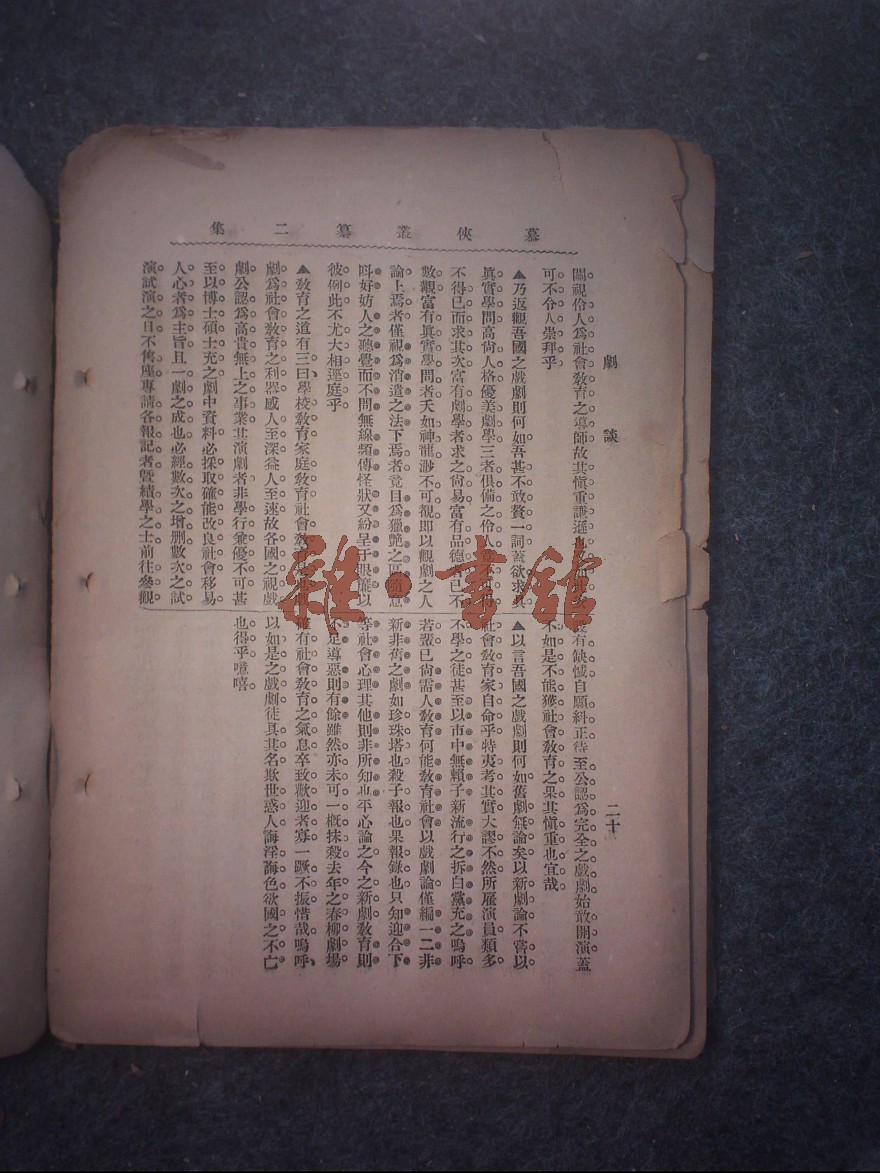 慕俠叢纂二集
劇談
二十
闢視伶人爲社會教育之導師故其愼重謙遜
可不令人崇拜乎
▲乃返觀吾國之戲劇則何如吾甚不敢贅一詞蓋欲求其
眞實學問高尙人格優美劇學三者俱備之伶人
不得已而求其次富有劇學者求之尙易富有品德者已不
數觀富有眞實學問者夭如神龍渺不可觀卽以觀劇之人
論上焉者僅視爲消遣之法下焉者竟目爲獵艷之區隨意
叫好妨人之聽覺而不問無線頻傳怪狀又紛呈于眼簾以
彼例此不尤大相逕庭乎
▲教育之道有三曰學校教育家庭教育社會教育
劇爲社會教育之利器感人至深益人至速故各國之視戲
劇公認爲高貴無上之事業其演劇者非學行兼優不可甚
至以博士碩士充之劇中資料必採取確能改良社會移易
人心者爲主旨且一劇之成也必經數次之增删數次之試
演試演之日不售座專請各報記者曁績學之士前往參觀
有缺憾自願糾正待至公認爲完全之戲劇始敢開演蓋
不如是不能獲社會教育之果其愼重也宜哉
▲以言吾國之戲劇則何如舊劇無論矣以新劇論不嘗以
社會教育家自命乎特夷考其實大謬不然所雇演員類多
不學之徒甚至以市中無賴子新流行之拆白黨充之嗚呼
若輩已尙需人教育何能教育社會以戲劇論僅編一二非
新非舊之劇如珍珠塔也殺子報也果報錄也只知迎合下
等社會心理其他則非所知也平心論之今之新劇教育則
不足導惡則有餘雖然亦未可一概抹殺去年之春柳劇場
確有社會教育之氣息卒致歡迎者寡一蹶不振惜哉嗚呼
以如是之戲劇徒具其名欺世惑人誨淫誨色欲國之不亡
也得乎噫嘻
雜·書館